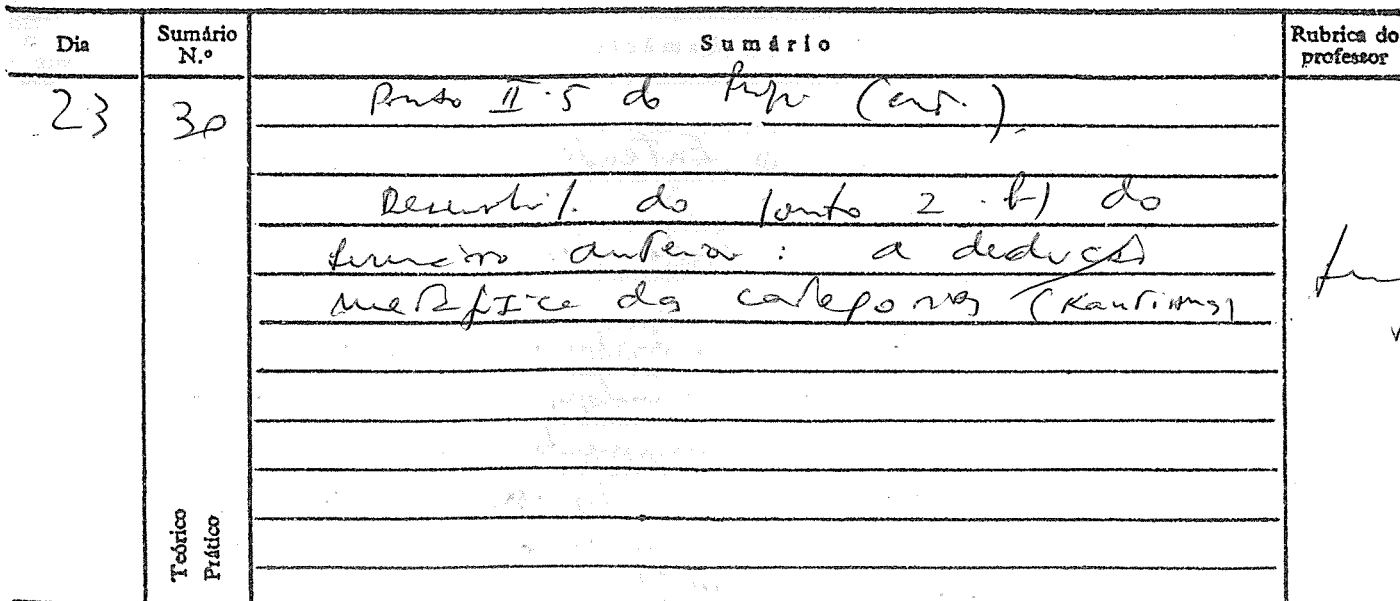 Dia
Sumário N.º
Sumário
Rubrica do professor
23
30
Ponto II.5 do (cont.).
do ponto 2. b) do
sumário anterior: a dedução
metafísica das categorias (Kantianas)
Teórico
Prático